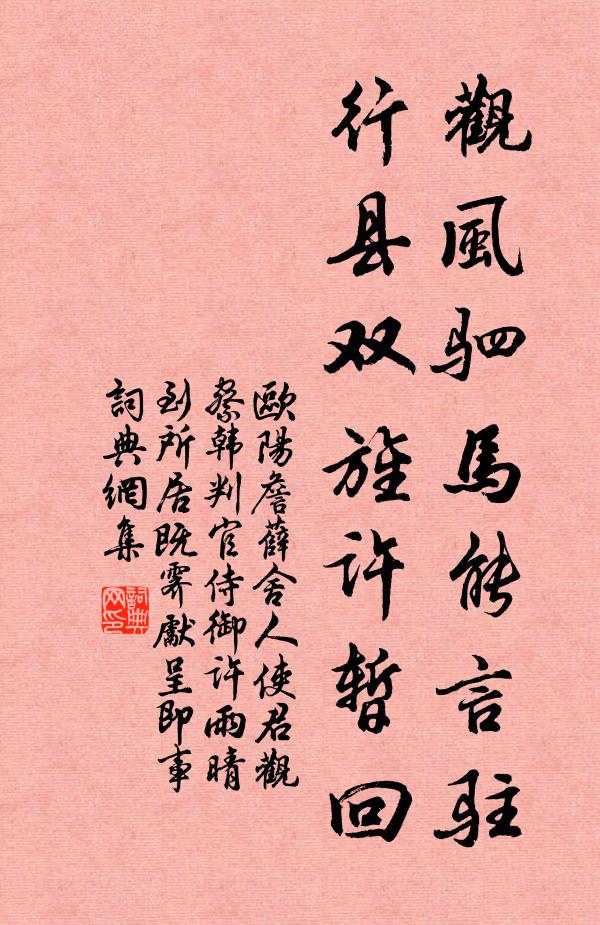 觀風駟馬能言駐
行县双旌许暂回
歐陽詹薛舍人使君觀
察韩判官侍御许雨晴
到所居既霁獻呈即事
詞典網集
詞典网印